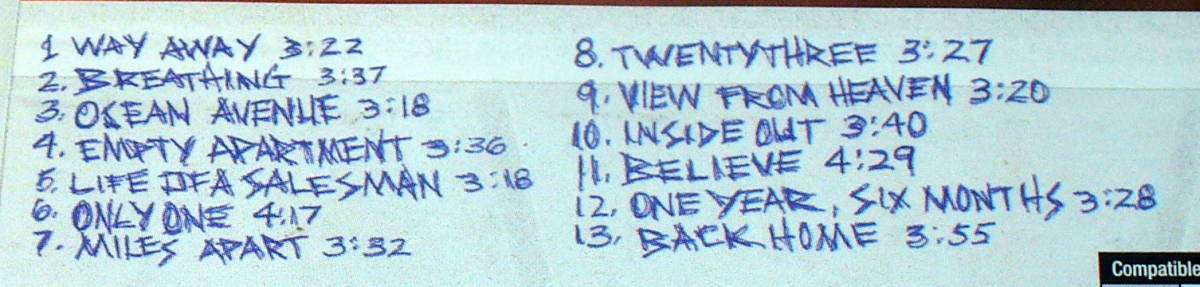 1 WAY AWAY 3:22
2. BREATHING 3:37
3. OSEAN AVENUE 3:18
4. EMPTY APARTMENT 3:36
5. LIFE OF A SALESMAN 3:18
6. ONLY ONE 4:17
7. MILES APART 3:32
8. TWENTYTHREE 3:27
9. VIEW FROM HEAVEN 3:20
10. INSIDE OUT 3:40
11. BELIEVE 4:29
12. ONE YEAR, SIX MONTHS 3:28
13. BACK HOME 3:55
Compatible